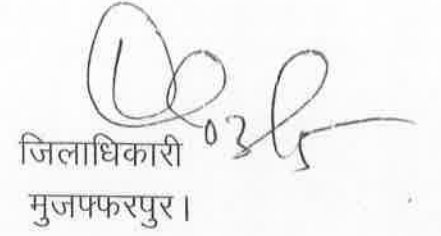 जिलाधिकारी
मुजफ्फरपुर।